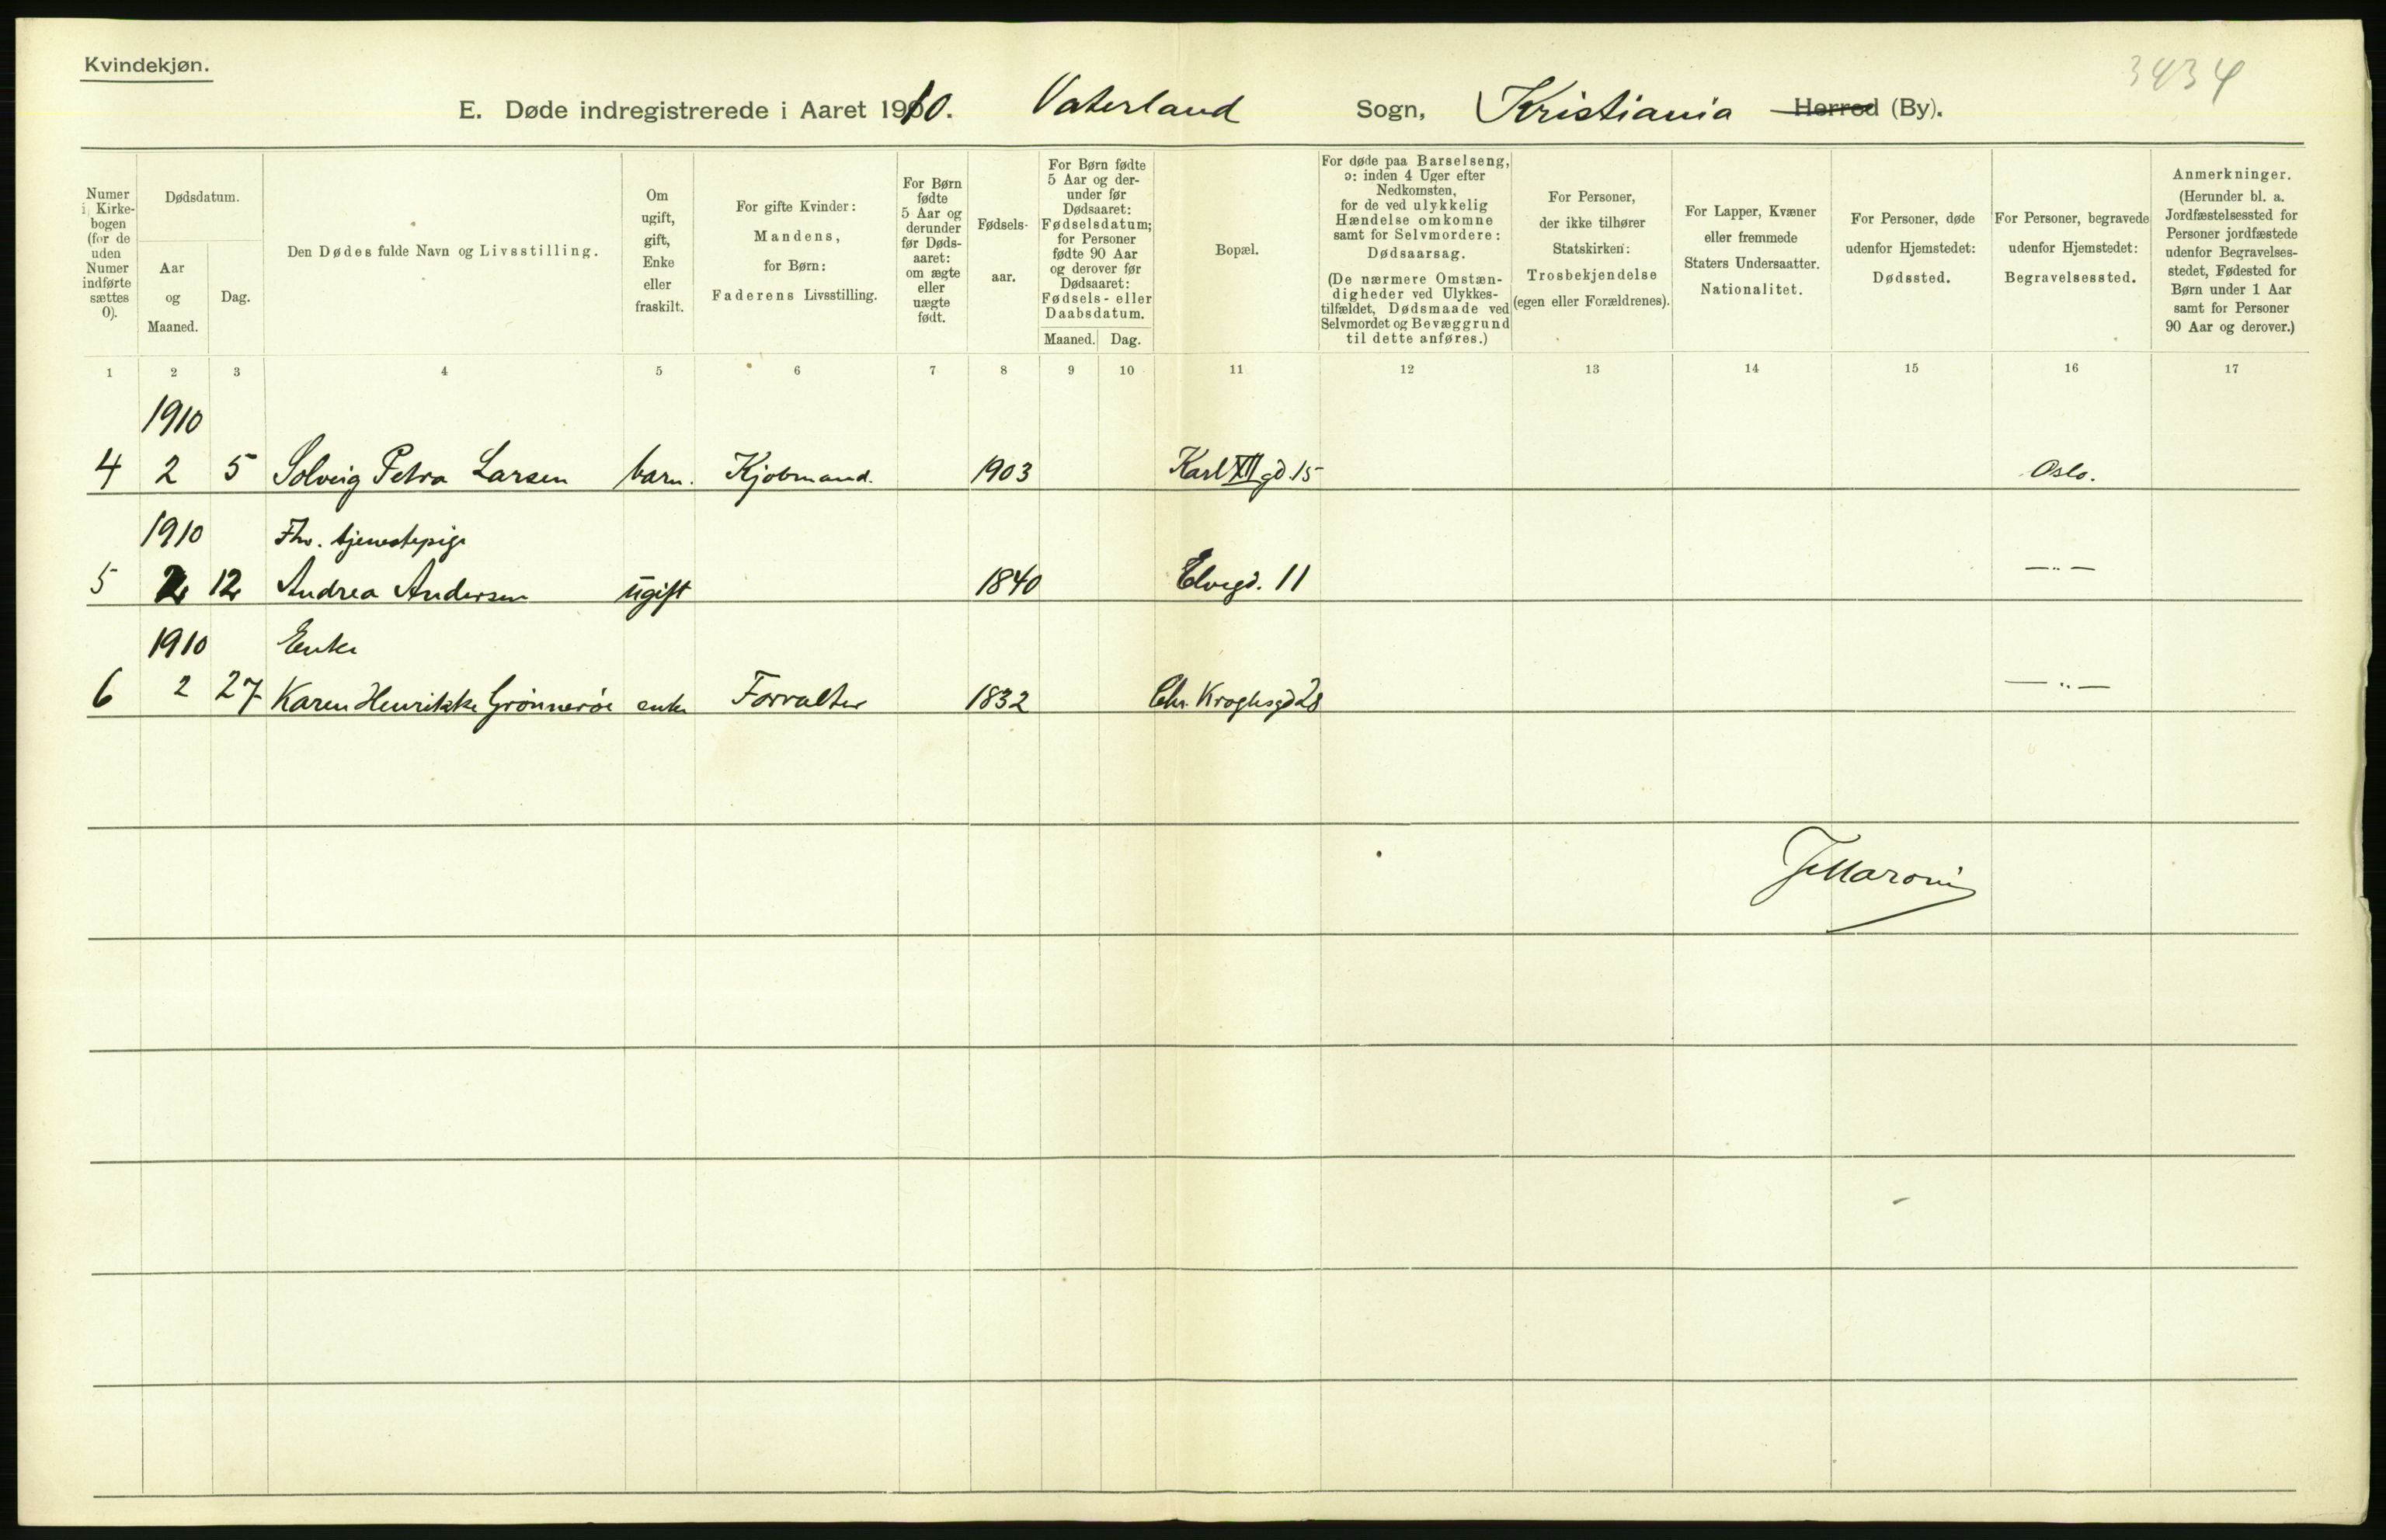 Kvindekjøn.
3434
E. Døde indregistrerede i Aaret 1910. Vaterland Sogn, Kristiania Herred (By).
Numer i Kirkebogen (for de uden Numer indførte sættes 0).
Dødsdatum.
Aar og Maaned.
Dag.
Den Dødes fulde Navn og Livsstilling.
Om ugift, gift, Enke eller fraskilt.
For gifte Kvinder: Mandens, for Børn: Faderens Livsstilling.
For Børn fødte 5 Aar og derunder før Dødsaaret: om ægte eller uægte født.
Fødselsaar.
For Børn fødte 5 Aar og derunder før Dødsaaret: Fødselsdatum; for Personer fødte 90 Aar og derover før Dødsaaret: Fødsels- eller Daabsdatum.
Maaned. Dag.
Bopæl.
For døde paa Barselseng, ɔ: inden 4 Uger efter Nedkomsten, for de ved ulykkelig Hændelse omkomne samt for Selvmordere: Dødsaarsag.
(De nærmere Omstændigheder ved Ulykkestilfældet, Dødsmaade ved Selvmordet og Bevæggrund til dette anføres.)
For Personer, der ikke tilhører Statskirken: Trosbekjendelse (egen eller Forældrenes).
For Lapper, Kvæner eller fremmede Staters Undersaatter. Nationalitet.
For Personer, døde udenfor Hjemstedet: Dødssted.
For Personer, begravede udenfor Hjemstedet: Begravelsessted.
Anmerkninger.
(Herunder bl. a. Jordfæstelsessted for Personer jordfæstede udenfor Begravelsesstedet, Fødested for Børn under 1 Aar samt for Personer 90 Aar og derover.)
1 2 3 4 5 6 7 8 9 10 11 12 13 14 15 16 17
1910
4 2 5 Solveig Petra Larsen barn. Kjøbmand. 1903 Karl XII gd. 15 Oslo.
1910 Fhv. tjenestepige
5 2 12 Andrea Andersen ugift 1840 Elvegd. 11 — „ —
1910 Enke
6 2 27 Karen Henrikke Grønnerøe enke Forvalter 1832 Chr. Kroghsgd 28 — „ —